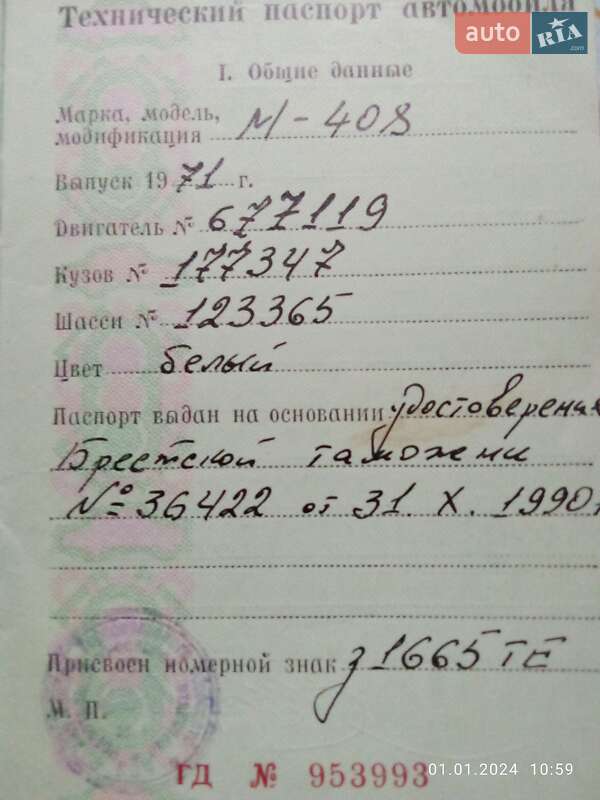 Технический паспорт автомобиля
auto RIA .com
I. Общие данные
Марка, модель,
модификация М-408
Выпуск 1971 г.
Двигатель № 677119
Кузов № 177347
Шасси № 123365
Цвет белый
Паспорт выдан на основании удостоверения
Брестской таможни
№ 36422 от 31. X. 1990г
Присвоен номерной знак з1665ТЕ
М. П.
ГД № 953993
01.01.2024 10:59